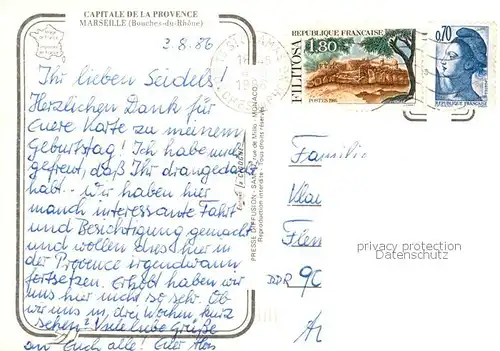 CAPITALE DE LA PROVENCE
MARSEILLE (Bouches-du-Rhône)
3.8.86
Ihr lieben Seidels!
Herzlichen Dank für
Euere Karte zu meinem
Geburtstag! Ich habe mich
gefreut, daß Ihr drangedacht
habt. - Wir haben hier
manch interessante Fahrt
und Besichtigung gemacht
und wollen dies hier in
der Provence irgendwann
fortsetzen. erholt haben wir
uns hier nicht so sehr. Ob
wir uns in drei Wochen kurz
sehen? Viele liebe Grüße
an Euch alle! Euer
PRESSE DIFFUSION - rue de Millo - MONACO
Reproduction interdite - Tous droits réservés
FILITOSA
REPUBLIQUE FRANÇAISE
1,80
POSTES 1986
0,70
REPUBLIQUE FRANÇAISE
Familie
Klau
Flem
DDR 90
privacy protection
DATENSCHUTZ